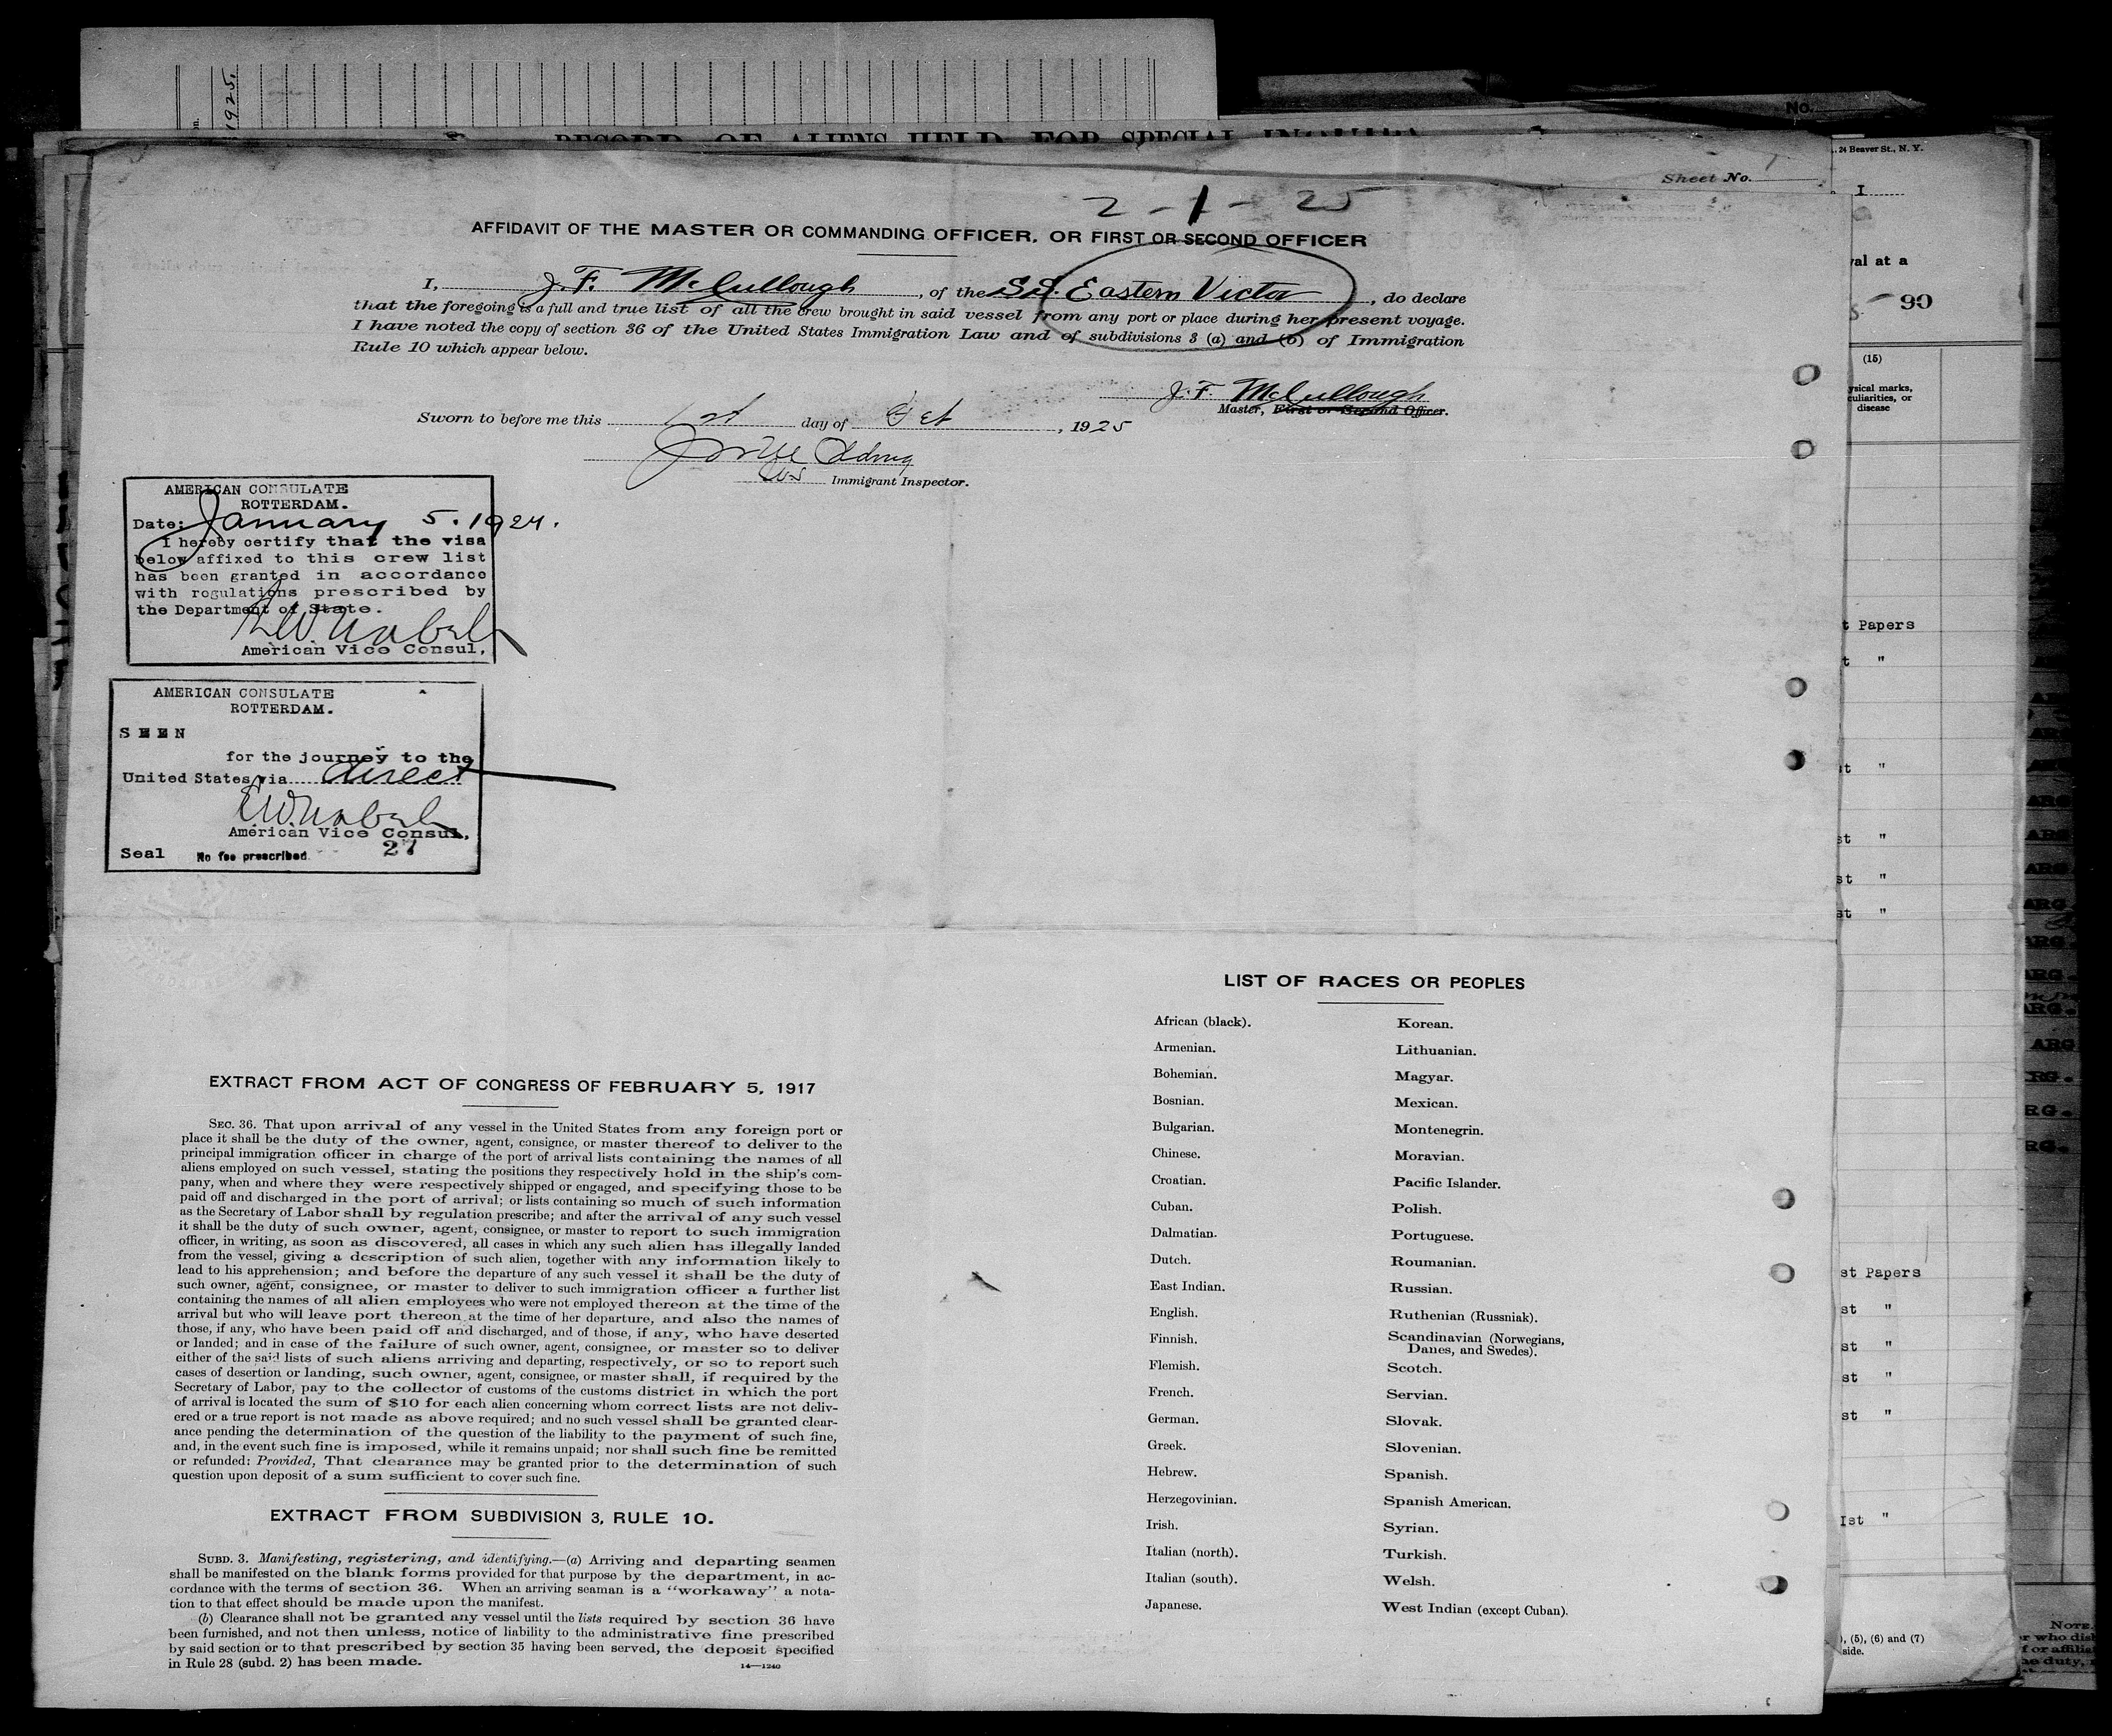 1925.
RECORD OF ALIENS HELD FOR SPECIAL INQUIRY
No.
24 Beaver St., N. Y.
Sheet No. 1
I
2 - 1 - 25
AFFIDAVIT OF THE MASTER OR COMMANDING OFFICER, OR FIRST OR SECOND OFFICER
I, J. F. McCullough, of the SS. Eastern Victor, do declare
that the foregoing is a full and true list of all the crew brought in said vessel from any port or place during her present voyage.
I have noted the copy of section 36 of the United States Immigration Law and of subdivisions 3 (a) and (b) of Immigration
Rule 10 which appear below.
val at a
99
J. F. McCullough
Master, First or Second Officer.
Sworn to before me this 1st day of , 1925
Immigrant Inspector.
(15)
ysical marks,
culiarities, or
disease
AMERICAN CONSULATE
ROTTERDAM.
Date: January 5. 1924.
I hereby certify that the visa
below affixed to this crew list
has been granted in accordance
with regulations prescribed by
the Department of State.
American Vice Consul.
AMERICAN CONSULATE
ROTTERDAM.
SEEN
for the journey to the
United States via direct
American Vice Consul.
27
Seal No fee prescribed
t Papers
t "
st "
st "
st "
st "
EXTRACT FROM ACT OF CONGRESS OF FEBRUARY 5, 1917
SEC. 36. That upon arrival of any vessel in the United States from any foreign port or
place it shall be the duty of the owner, agent, consignee, or master thereof to deliver to the
principal immigration officer in charge of the port of arrival lists containing the names of all
aliens employed on such vessel, stating the positions they respectively hold in the ship's com-
pany, when and where they were respectively shipped or engaged, and specifying those to be
paid off and discharged in the port of arrival; or lists containing so much of such information
as the Secretary of Labor shall by regulation prescribe; and after the arrival of any such vessel
it shall be the duty of such owner, agent, consignee, or master to report to such immigration
officer, in writing, as soon as discovered, all cases in which any such alien has illegally landed
from the vessel, giving a description of such alien, together with any information likely to
lead to his apprehension; and before the departure of any such vessel it shall be the duty of
such owner, agent, consignee, or master to deliver to such immigration officer a further list
containing the names of all alien employees who were not employed thereon at the time of the
arrival but who will leave port thereon at the time of her departure, and also the names of
those, if any, who have been paid off and discharged, and of those, if any, who have deserted
or landed; and in case of the failure of such owner, agent, consignee, or master so to deliver
either of the said lists of such aliens arriving and departing, respectively, or so to report such
cases of desertion or landing, such owner, agent, consignee, or master shall, if required by the
Secretary of Labor, pay to the collector of customs of the customs district in which the port
of arrival is located the sum of $10 for each alien concerning whom correct lists are not deliv-
ered or a true report is not made as above required; and no such vessel shall be granted clear-
ance pending the determination of the question of the liability to the payment of such fine,
and, in the event such fine is imposed, while it remains unpaid; nor shall such fine be remitted
or refunded: Provided, That clearance may be granted prior to the determination of such
question upon deposit of a sum sufficient to cover such fine.
EXTRACT FROM SUBDIVISION 3, RULE 10.
SUBD. 3. Manifesting, registering, and identifying.—(a) Arriving and departing seamen
shall be manifested on the blank forms provided for that purpose by the department, in ac-
cordance with the terms of section 36. When an arriving seaman is a "workaway" a nota-
tion to that effect should be made upon the manifest.
(b) Clearance shall not be granted any vessel until the lists required by section 36 have
been furnished, and not then unless, notice of liability to the administrative fine prescribed
by said section or to that prescribed by section 35 having been served, the deposit specified
in Rule 28 (subd. 2) has been made.
14—1240
LIST OF RACES OR PEOPLES
African (black).
Armenian.
Bohemian.
Bosnian.
Bulgarian.
Chinese.
Croatian.
Cuban.
Dalmatian.
Dutch.
East Indian.
English.
Finnish.
Flemish.
French.
German.
Greek.
Hebrew.
Herzegovinian.
Irish.
Italian (north).
Italian (south).
Japanese.
Korean.
Lithuanian.
Magyar.
Mexican.
Montenegrin.
Moravian.
Pacific Islander.
Polish.
Portuguese.
Roumanian.
Russian.
Ruthenian (Russniak).
Scandinavian (Norwegians,
Danes, and Swedes).
Scotch.
Servian.
Slovak.
Slovenian.
Spanish.
Spanish American.
Syrian.
Turkish.
Welsh.
West Indian (except Cuban).
st Papers
st "
st "
st "
st "
1st "
), (5), (6) and (7)
side.
NOTE.
r who dis
f or affilia
he duty,